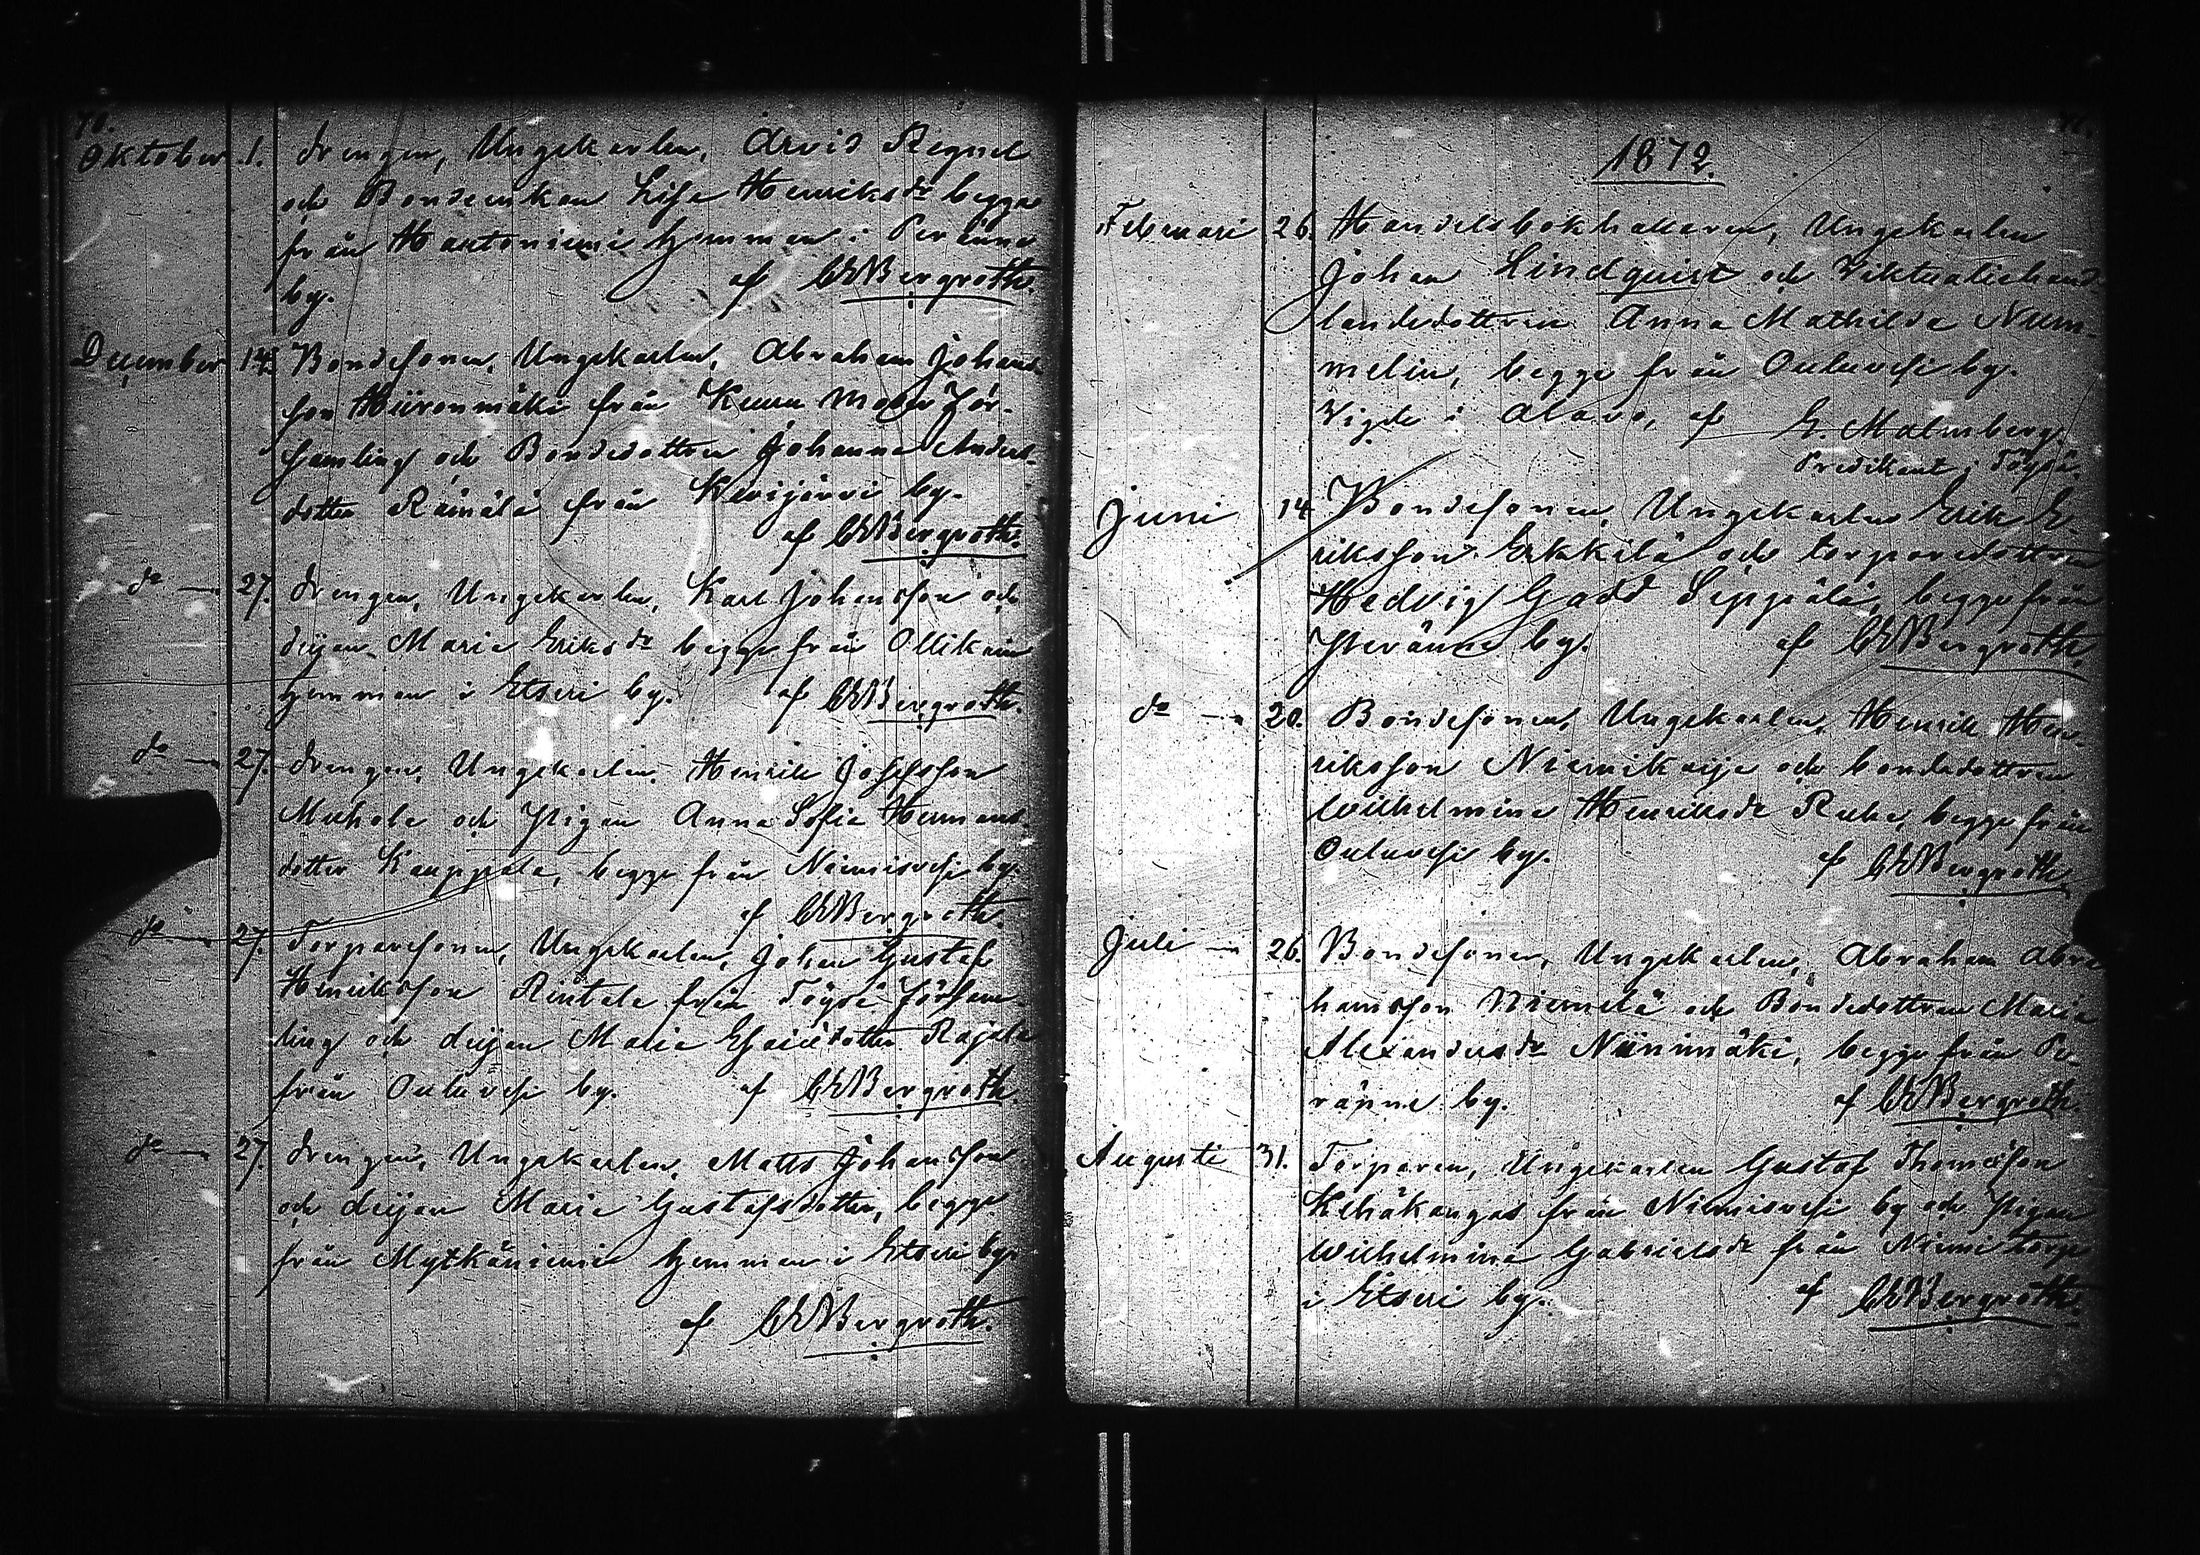 70.
Oktober 1. drengen, Ungekarlen, Arvid Regnel
och Bondeenkan Lisa Henriksdr begge
från Hautoniemi hemman i Peränne
by. af CEBergroth.
December 14. Bondesonen, Ungekarlen, Abraham Johans-
son Hiironmäki från Keuru Moder För-
samling och Bondedottren Johanna Anders-
dotter Rämälä från Kivijärvi by.
af CEBergroth.
do — 27. drengen, Ungekarlen, Karl Johansson och
deijan Maria Eriksdr begge från Ollikain
hemman i Etseri by. af CEBergroth.
do — 27. drengen, Ungekarlen, Henrik Josefsson
och Pigan Anna Sofia Hermans-
dotter Kauppila, begge från Niemisvesi by.
af CEBergroth.
do — 27. Torparesonen, Ungekarlen, Johan Gustaf
Henriksson Rintala från Töysä Försam-
ling och deijan Maria Esaiædotter Rajala
från Ouluvesi by. af CEBergroth.
do — 27. drengen, Ungekarlen, Matts Johansson
och deijan Maria Gustafsdotter, begge
från Mytkäniemi hemman i Etseri by.
af CEBergroth.
71.
1872.
Februari 26. Handelsbokhållaren, Ungekarlen
Johan Lindquist och Viktualiehand-
landedottren Anna Mathilda Num-
melin, begge från Ouluvesi by.
Vigde i Alavo, af E. Malmberg.
Predikant i Töysä.
Juni 14 Bondesonen, Ungekarlen Erik E-
riksson Erkkilä och torparedottren
Hedvig Gadd Seppälä, begge från
Peränne by. af CEBergroth.
do — 20. Bondesonen, Ungekarlen, Henrik Hen-
riksson Niemikarja och bondedottren
Wilhelmina Henriksdr Ruha, begge från
Ouluvesi by. af CEBergroth.
Juli — 26. Bondesonen, Ungekarlen, Abraham Abra-
hamsson Niemelä och Bondedottren Maria
Alexandersdr Niinimäki, begge från Pe-
ränne by. af CEBergroth.
Augusti 31. Torparen, Ungekarlen Gustaf Thomasson
Kehäkangas från Niemisvesi by och Pigan
Wilhelmina Gabrielsdr från Niemi torp
i Etseri by. af CEBergroth.